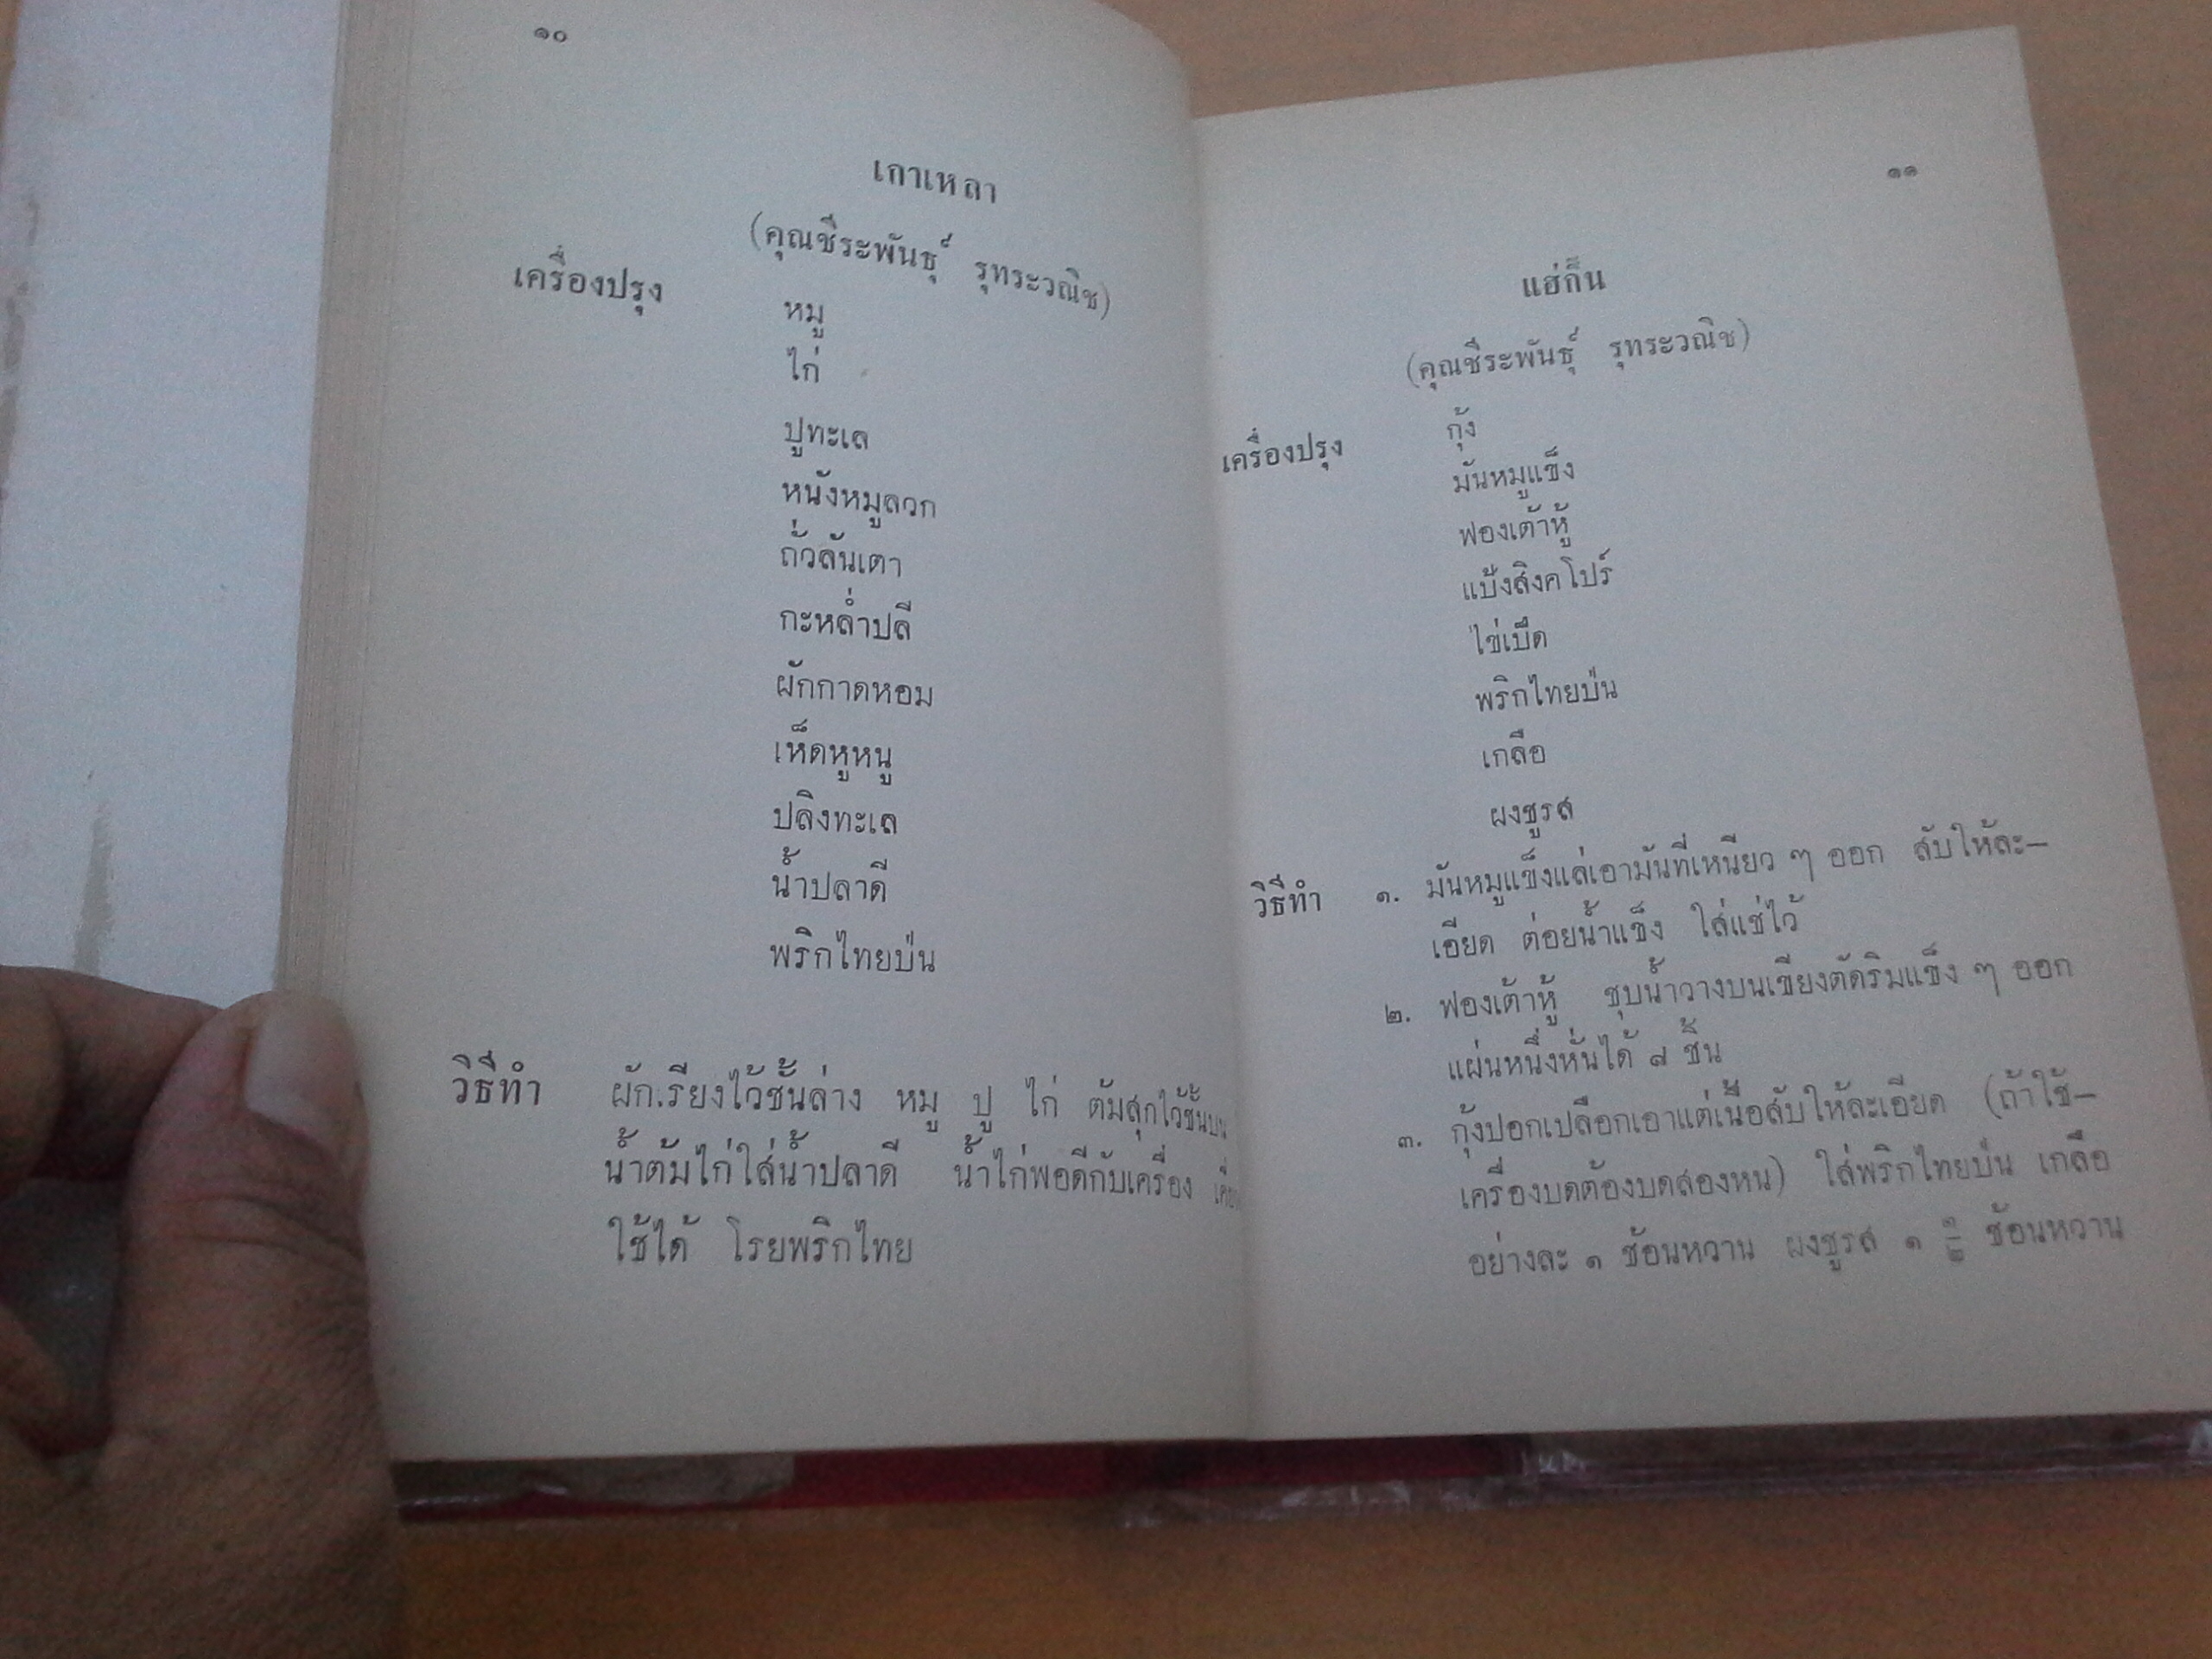 ๑๐
เกาเหลา
(คุณชีระพันธุ์ รุทระวณิช)
เครื่องปรุง หมู
ไก่
ปูทะเล
หนังหมูลวก
ถั่วลันเตา
กะหล่ำปลี
ผักกาดหอม
เห็ดหูหนู
ปลิงทะเล
น้ำปลาดี
พริกไทยป่น
วิธีทำ ผักเรียงไว้ชั้นล่าง หมู ปู ไก่ ต้มสุกไว้ชั้นบน
น้ำต้มไก่ใส่น้ำปลาดี น้ำไก่พอดีกับเครื่อง
ใช้ได้ โรยพริกไทย
๑๑
แฮ่กึ๊น
(คุณชีระพันธุ์ รุทระวณิช)
เครื่องปรุง กุ้ง
มันหมูแข็ง
ฟองเต้าหู้
แป้งสิงคโปร์
ไข่เป็ด
พริกไทยป่น
เกลือ
ผงชูรส
วิธีทำ ๑. มันหมูแข็งแล่เอามันที่เหนียว ๆ ออก สับให้ละ–
เอียด ต่อยน้ำแข็ง ใส่แช่ไว้
๒. ฟองเต้าหู้ ชุบน้ำวางบนเขียงตัดริมแข็ง ๆ ออก
แผ่นหนึ่งหั่นได้ ๘ ชิ้น
๓. กุ้งปอกเปลือกเอาแต่เนื้อสับให้ละเอียด (ถ้าใช้–
เครื่องบดต้องบดสองหน) ใส่พริกไทยป่น เกลือ
อย่างละ ๑ ช้อนหวาน ผงชูรส ๑ ๑/๒ ช้อนหวาน